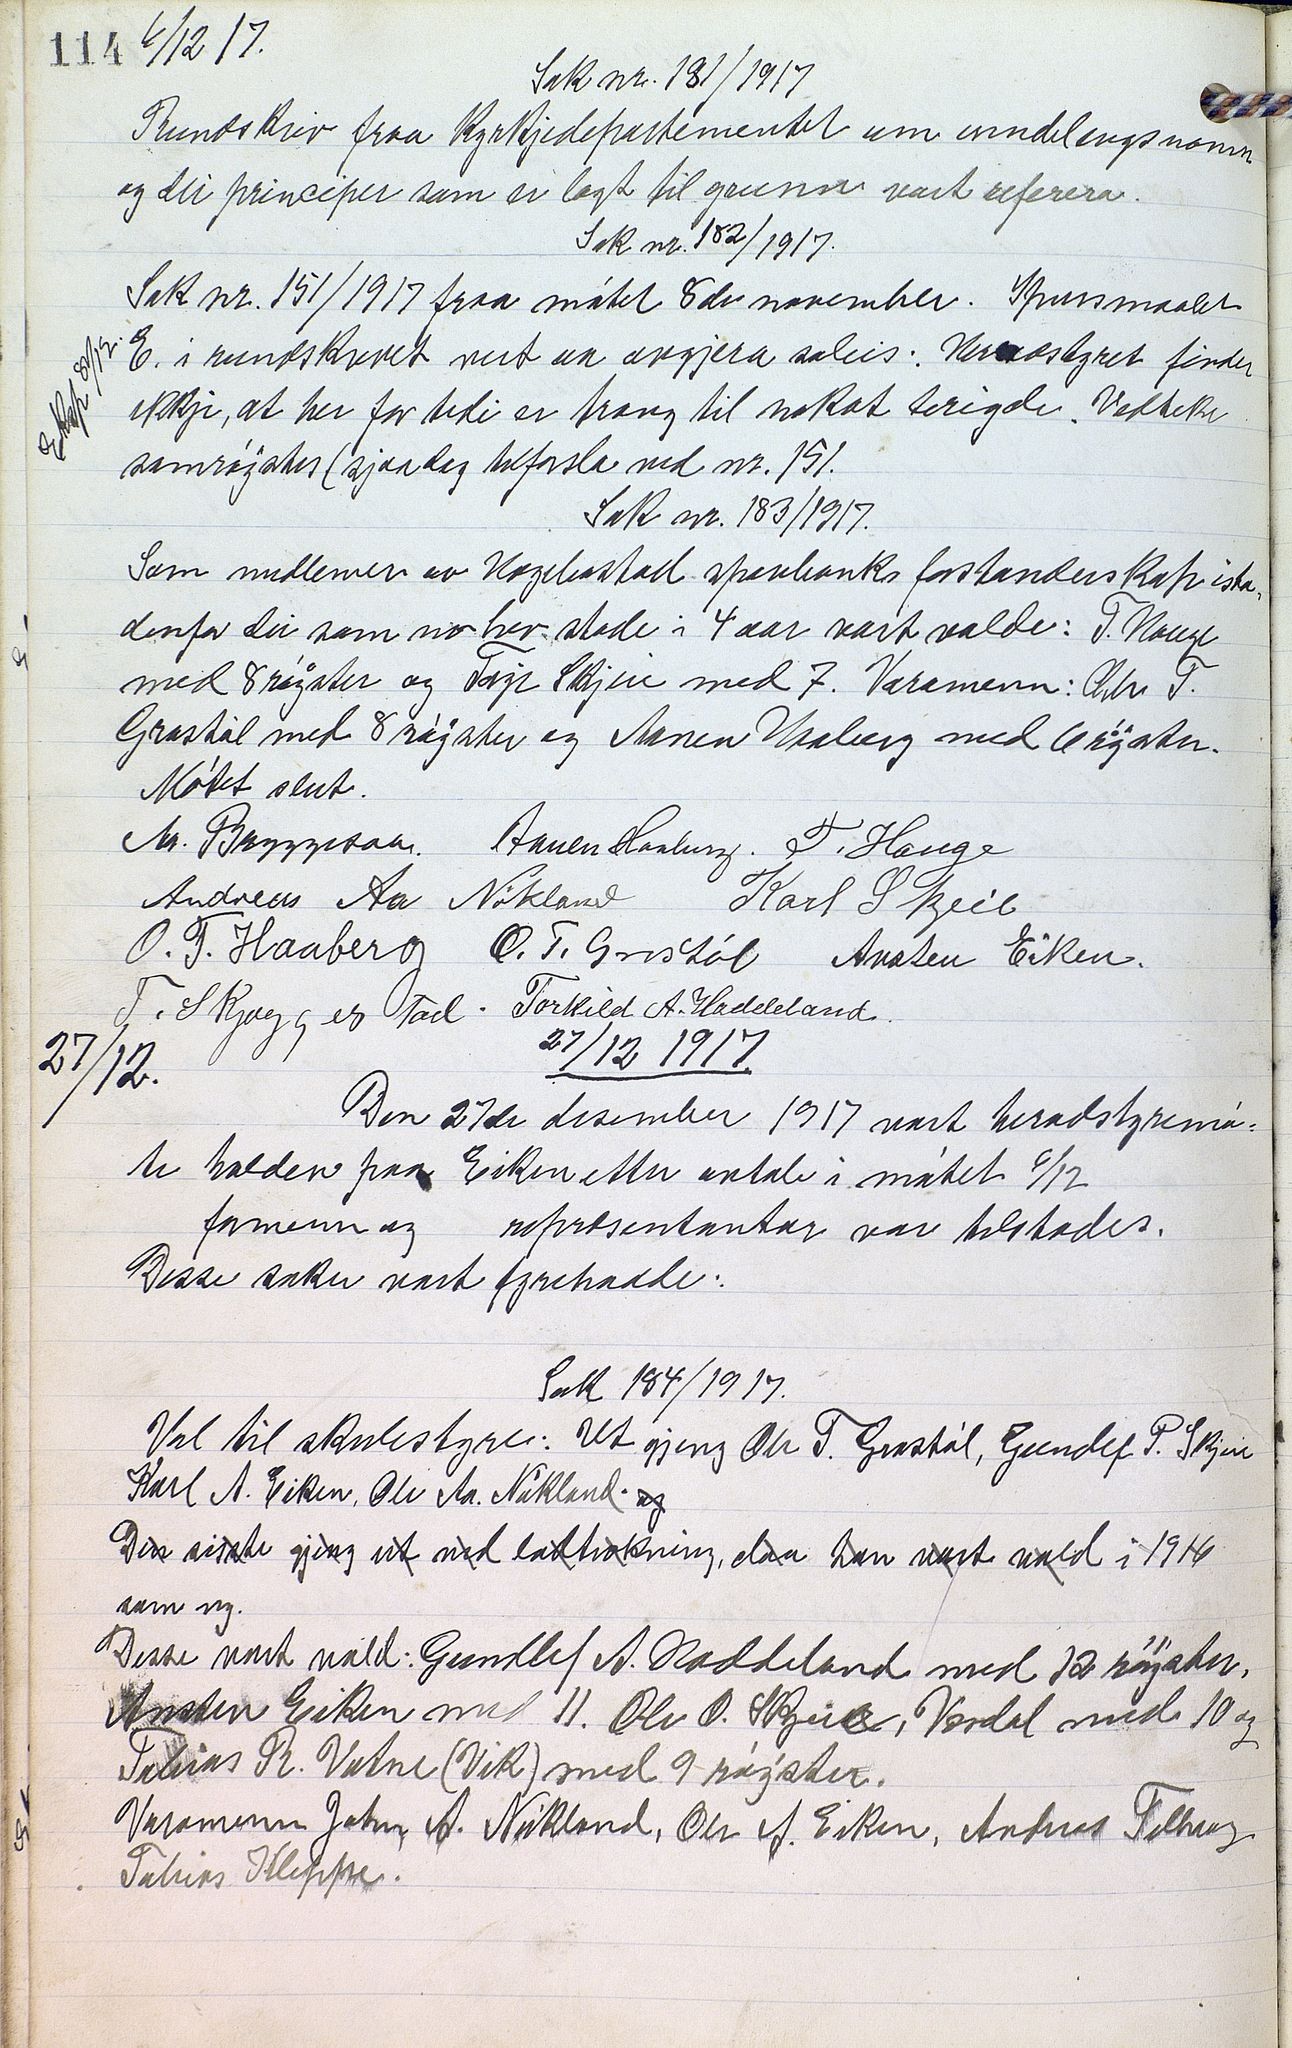 114 6/12 17.
Sak nr. 181/1917
Rundskriv fraa Kyrkjedepartementet um umdelings namn
og dei principer som er lagt til grunn vart referera.
Sak nr. 182/1917.
Sak nr. 151/1917 fraa møtet 8de november. Spursmaalet
E. i rundskrivet vert av avgjera soleis: Heradstyret finder
ikkje, at her for tidi er trong til nokot serigde. Vedteke
samrøystes (sjaa dag tilforsla ved nr. 151.
Ekspr 8/12.
Sak nr. 183/1917.
Som medlemer av Hægebostad sparebanks forstanderskap ista-
denfor dei som no hev stade i 4 aar vart valde: T. Hauge
med 8 røyster og Terje Skjeie med 7. Varamenn: Ole T.
Grostøl med 8 røyster og Aanen Haaberg med 6 røyster.
Møtet slut.
Aa. Bryggesaa. Aanen Haaberg. T. Hauge
Andreas Aa Nøkland Karl Skjeie
O. T. Haaberg O. T. Grostøl Ansten Eiken.
T. Skjeggestad. Torkild A. Haddeland.
27/12.
27/12 1917.
Den 27de desember 1917 vart heradstyremø-
te halden paa Eiken etter avtale i møtet 6/12
formenn og representantar var tilstades.
Desse saker vart fyrehadde:
Sak 184/1917.
Val til skulestyre: Ut gjeng Ole T. Grostøl, Gundlef P. Skjeie
Karl A. Eiken, Ole Aa. Nøkland. og
Den sisste gjeng ut ved lodtrekning, daa han vart vald i 1916
som ny.
Desse vart vald: Gundlef A. Haddeland med 12 røyster,
Ansten Eiken med 11. Ole O. Skjeie, Verdal med 10 og
Tobias Pr. Vatne (Vik) med 9 røyster.
Varamenn John A. Nøkland, Ole A. Eiken, Andreas
Tobias Kleppe.